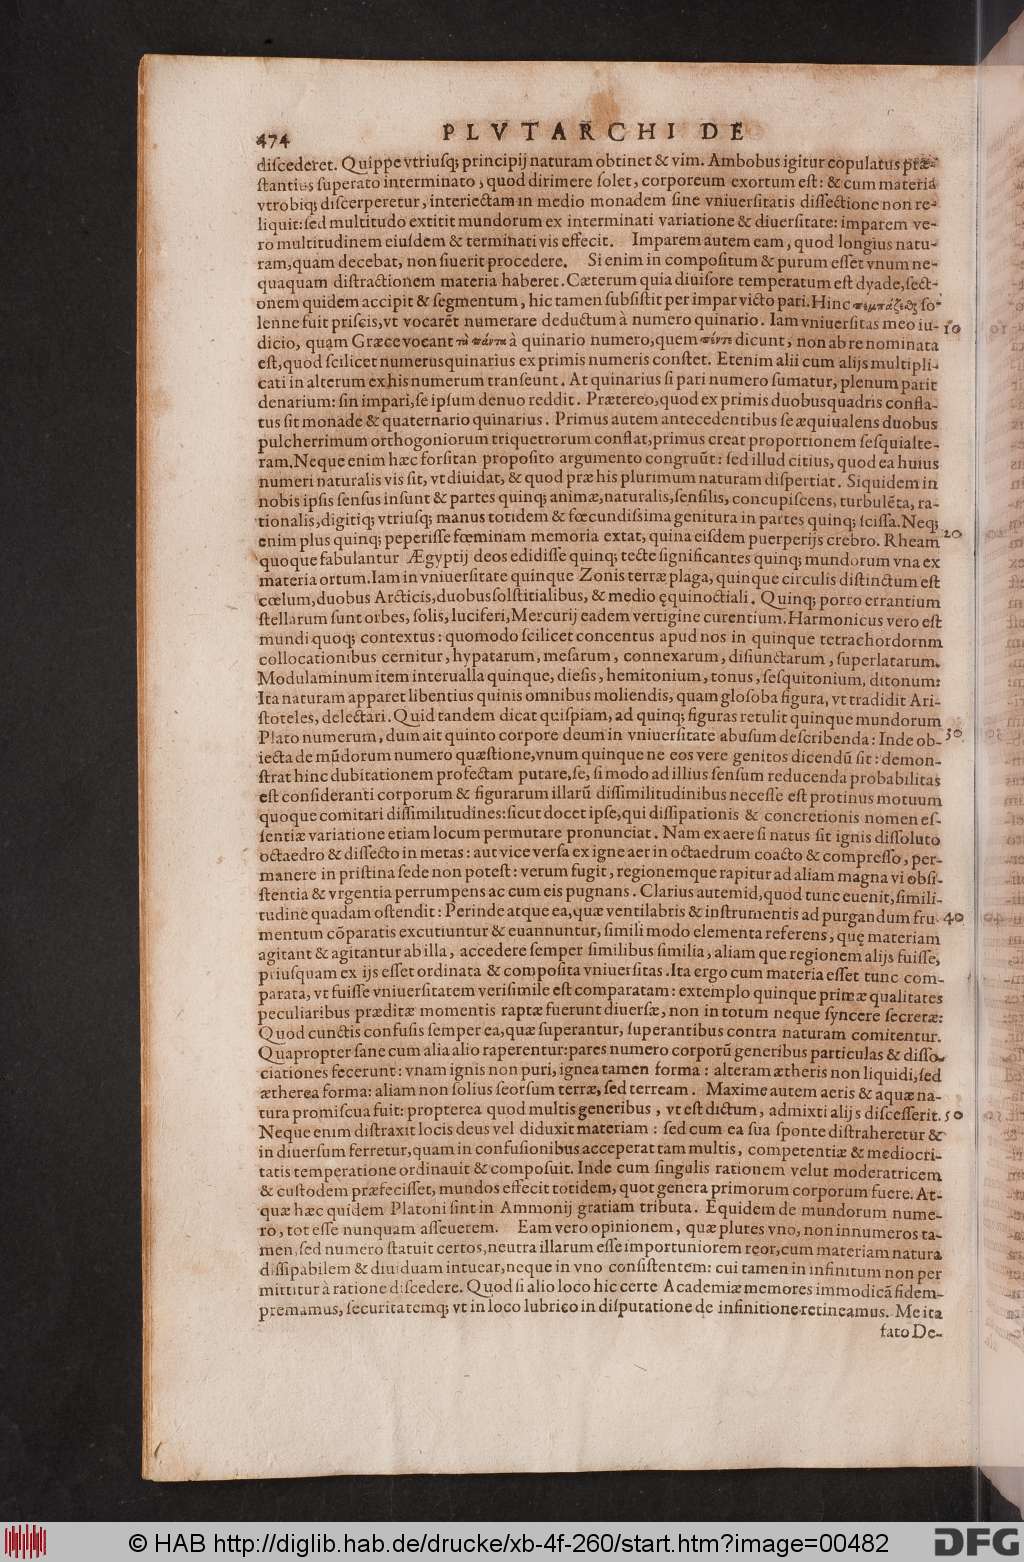 474
PLVTARCHI DE
discederet. Quippe vtriusq; principij naturam obtinet & vim. Ambobus igitur copulatus præ-
stantius superato interminato, quod dirimere solet, corporeum exortum est: & cum materia
vtrobiq; discerperetur, interiectam in medio monadem sine vniuersitatis dissectione non re-
liquit: sed multitudo extitit mundorum ex interminati variatione & diuersitate: imparem ve-
ro multitudinem eiusdem & terminati vis effecit. Imparem autem eam, quod longius natu-
ram, quam decebat, non siuerit procedere. Si enim in compositum & purum esset vnum ne-
quaquam distractionem materia haberet. Cæterum quia diuisore temperatum est dyade, sect-
onem quidem accipit & segmentum, hic tamen subsistit per impar victo pari. Hinc so-
lenne fuit priscis, vt vocarēt numerare deductum à numero quinario. Iam vniuersitas meo iu- 10
dicio, quam Græce vocant τὰ πάντα à quinario numero, quem πέντε dicunt, non ab re nominata
est, quod scilicet numerus quinarius ex primis numeris constet. Etenim alii cum alijs multipli-
cati in alterum ex his numerum transeunt. At quinarius si pari numero sumatur, plenum parit
denarium: sin impari, se ipsum denuo reddit. Prætereo, quod ex primis duobus quadris confla-
tus sit monade & quaternario quinarius. Primus autem antecedentibus se æquiualens duobus
pulcherrimum orthogoniorum triquetrorum conflat, primus creat proportionem sesquialte-
ram. Neque enim hæc forsitan proposito argumento congruūt: sed illud citius, quod ea huius
numeri naturalis vis sit, vt diuidat, & quod præ his plurimum naturam dispertiat. Siquidem in
nobis ipsis sensus insunt & partes quinq; animæ, naturalis, sensilis, concupiscens, turbulēta, ra-
tionalis, digitiq; vtriusq; manus totidem & fœcundissima genitura in partes quinq; scissa. Neq;
enim plus quinq; peperisse fœminam memoria extat, quina eisdem puerperijs crebro. Rheam 20
quoque fabulantur Ægyptij deos edidisse quinq; tecte significantes quinq; mundorum vna ex
materia ortum. Iam in vniuersitate quinque Zonis terræ plaga, quinque circulis distinctum est
cœlum, duobus Arcticis, duobus solstitialibus, & medio ęquinoctiali. Quinq; porro errantium
stellarum sunt orbes, solis, luciferi, Mercurij eadem vertigine curentium. Harmonicus vero est
mundi quoq; contextus: quomodo scilicet concentus apud nos in quinque tetrachordornm
collocationibus cernitur, hypatarum, mesarum, connexarum, disiunctarum, superlatarum.
Modulaminum item interualla quinque, diesis, hemitonium, tonus, sesquitonium, ditonum:
Ita naturam apparet libentius quinis omnibus moliendis, quam glosoba figura, vt tradidit Ari-
stoteles, delectari. Quid tandem dicat quispiam, ad quinq; figuras retulit quinque mundorum
Plato numerum, dum ait quinto corpore deum in vniuersitate abusum describenda: Inde ob- 30
iecta de mūdorum numero quæstione, vnum quinque ne eos vere genitos dicendū sit: demon-
strat hinc dubitationem profectam putare, se, si modo ad illius sensum reducenda probabilitas
est consideranti corporum & figurarum illarū dissimilitudinibus necesse est protinus motuum
quoque comitari dissimilitudines: sicut docet ipse, qui dissipationis & concretionis nomen es-
sentiæ variatione etiam locum permutare pronunciat. Nam ex aere si natus sit ignis dissoluto
octaedro & dissecto in metas: aut vice versa ex igne aer in octaedrum coacto & compresso, per-
manere in pristina sede non potest: verum fugit, regionemque rapitur ad aliam magna vi obsi-
stentia & vrgentia perrumpens ac cum eis pugnans. Clarius autem id, quod tunc euenit, simili-
tudine quadam ostendit: Perinde atque ea, quæ ventilabris & instrumentis ad purgandum fru- 40
mentum cōparatis excutiuntur & euannuntur, simili modo elementa referens, quę materiam
agitant & agitantur ab illa, accedere semper similibus similia, aliam que regionem alijs fuisse,
priusquam ex ijs esset ordinata & composita vniuersitas. Ita ergo cum materia esset tunc com-
parata, vt fuisse vniuersitatem verisimile est comparatam: extemplo quinque primæ qualitates
peculiaribus præditæ momentis raptæ fuerunt diuersæ, non in totum neque syncere secretæ:
Quod cunctis confusis semper ea, quæ superantur, superantibus contra naturam comitentur.
Quapropter sane cum alia alio raperentur: pares numero corporū generibus particulas & disso-
ciationes fecerunt: vnam ignis non puri, ignea tamen forma: alteram ætheris non liquidi, sed
ætherea forma: aliam non solius seorsum terræ, sed terream. Maxime autem aeris & aquæ na-
tura promiscua fuit: propterea quod multis generibus, vt est dictum, admixti alijs discesserit. 50
Neque enim distraxit locis deus vel diduxit materiam: sed cum ea sua sponte distraheretur &
in diuersum ferretur, quam in confusionibus acceperat tam multis, competentiæ & mediocri-
tatis temperatione ordinauit & composuit. Inde cum singulis rationem velut moderatricem
& custodem præfecisset, mundos effecit totidem, quot genera primorum corporum fuere. At-
quæ hæc quidem Platoni sint in Ammonij gratiam tributa. Equidem de mundorum nume-
ro, tot esse nunquam asseuerem. Eam vero opinionem, quæ plures vno, non innumeros ta-
men, sed numero statuit certos, neutra illarum esse importuniorem reor, cum materiam natura
dissipabilem & diuiduam intuear, neque in vno consistentem: cui tamen in infinitum non per
mittitur à ratione discedere. Quod si alio loco hic certe Academiæ memores immodicā fidem-
premamus, securitatemq; vt in loco lubrico in disputatione de infinitione retineamus. Me ita
fato De-
© HAB http://diglib.hab.de/drucke/xb-4f-260/start.htm?image=00482
DFG